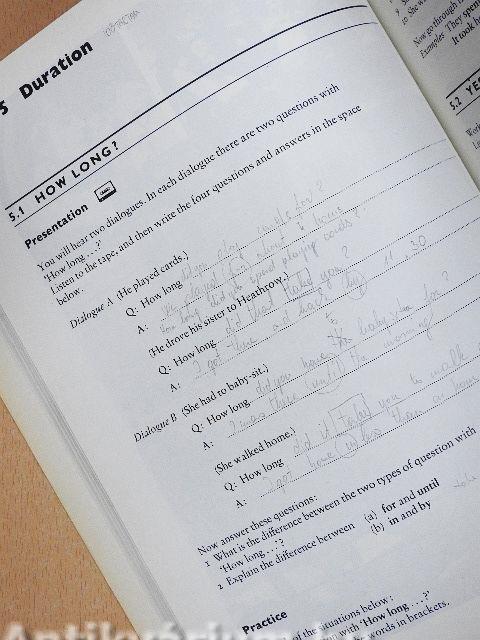 5 Duration
5.1 HOW LONG?
Presentation
You will hear two dialogues. In each dialogue there are two questions with
'How long . . .?'
Listen to the tape, and then write the four questions and answers in the space
below:
Dialogue A (He played cards.)
Q: How long did you play cards for?
A: We played for about 2 hours
How long did you spend playing cards?
(He drove his sister to Heathrow.)
Q: How long did that take you?
A: I got there and back by 11.30
Dialogue B (She had to baby-sit.)
Q: How long did you have to babysit for?
A: I was there until the morning
(She walked home.)
Q: How long did it take you to walk
A: I got home in less than an hour
Now answer these questions:
1 What is the difference between the two types of question with
'How long . . .'?
2 Explain the difference between (a) for and until
(b) in and by
Practice
of the situations below:
with 'How long . . .?'
words in brackets.
Now go through
Examples: They spen
It took he
5.2 YE